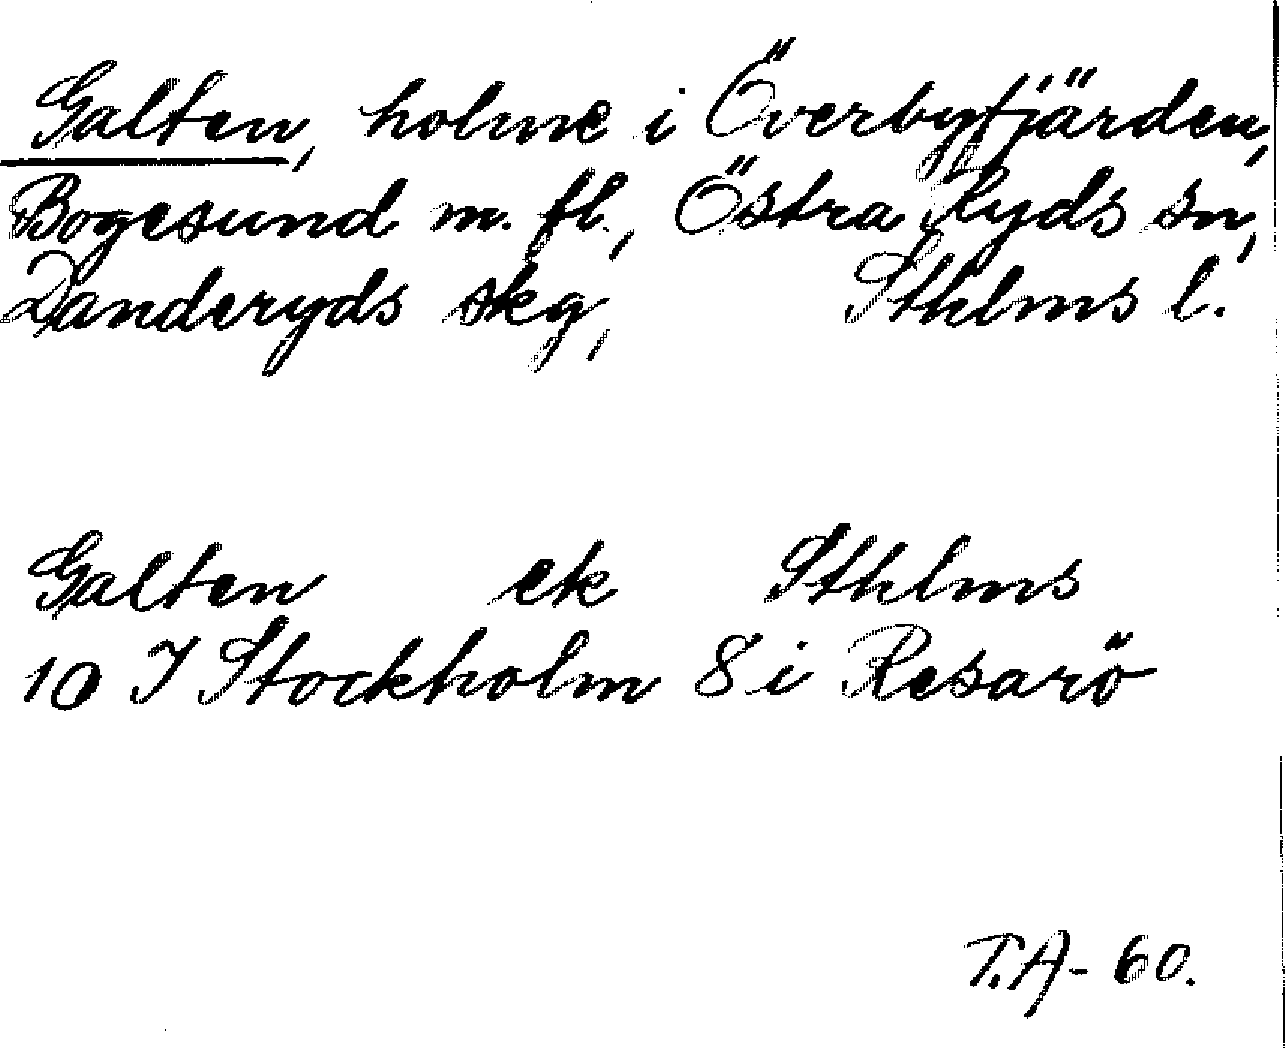 Galten, holme i Överbyfjärden,
Bogesund m. fl., Östra Ryds sn,
Danderyds skg, Sthlms l.
Galten ek Sthlms
10 I Stockholm 8 i Resarö
T.A- 60.